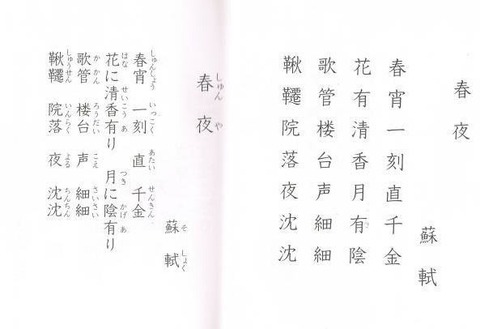 春夜
蘇軾
春宵一刻直千金
花有清香月有陰
歌管楼台声細細
鞦韆院落夜沈沈
しゅん や
春夜
そ しょく
蘇軾
しゅんしょう いっこく あたい せんきん
春宵 一刻 直 千金
はな せいこう あ つき かげ あ
花に清香有り 月に陰有り
かかん ろうだい こえ さいさい
歌管 楼台 声 細細
しゅうせん いんらく よる ちんちん
鞦韆 院落 夜 沈沈